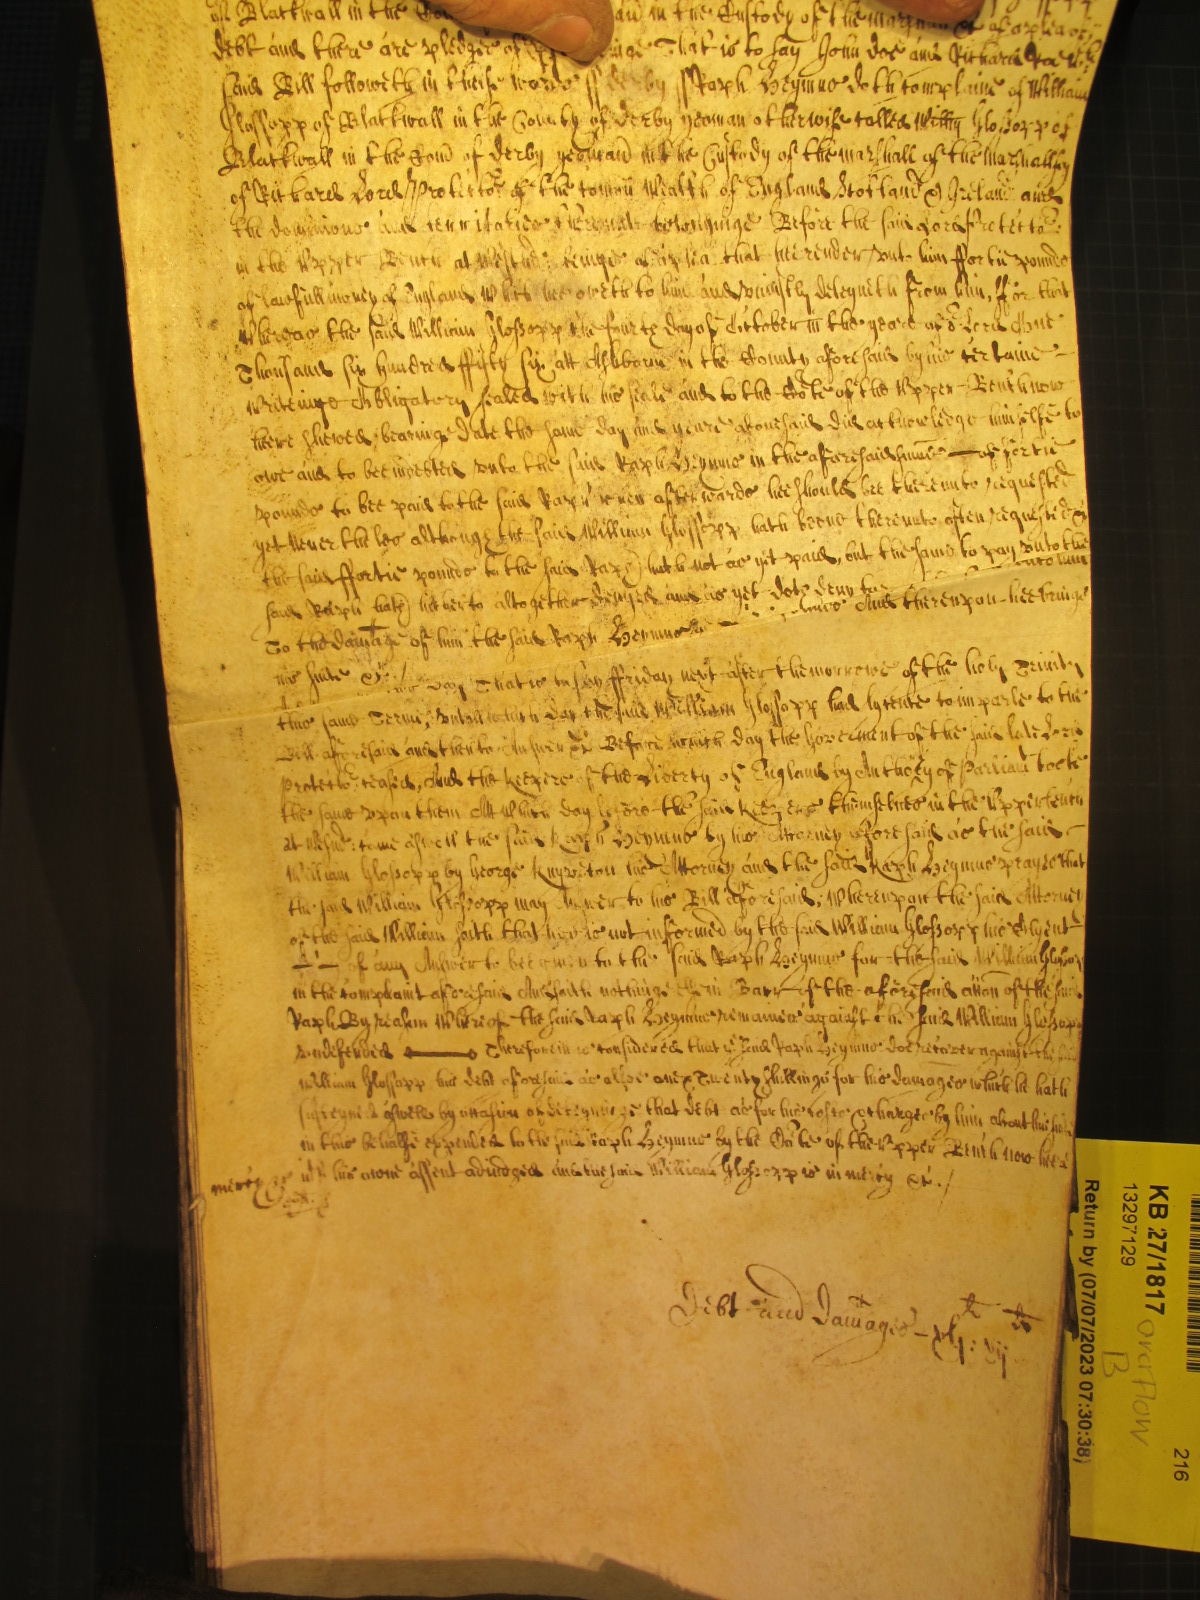 Blackwall in the in the Custody of the
debt and there are pledges of That is to say John doe and Richard Roe
said Bill followeth in theise words ss derby ss Raph Heynns doth complaine of William
Glossopp of Blackwall in the County of derby yeoman otherwise called Willm Glossopp of
Blackwall in the Coun of derby yeoman in the Custody of the marshall of the marshallsey
of Richard Lord Protector of the Common Wealth of England Scotland & Ireland and
the dominions and territories thereunto belonginge Before the said Lord Protector
in the Upper Bench at Westm: beinge of a plea that hee render unto him ffortie pounds
of lawfull money of England which hee oweth to him and uniustly deteyneth from him, ffor that
Whereas the said William Glossopp the fourth day of October in the yeare of or Lord One
Thousand six hundred ffifty six att Ashborne in the County aforesaid by his certaine
Writeinge Obligatory sealed with his seale and to the Corte of the Upper Bench now
here shewed bearinge date the same day and yeare aforesaid did acknowledge himselfe to
owe and to bee indebted unto the said Raph Heynns in the aforesaid summe of fortie
pounds to bee paid to the said Raph when afterwards hee should bee thereunto requested
yet Never the les although the said William Glossopp hath beene thereunto often requested
the said ffortie pounds to the said Raph hath not as yet paid, but the same to pay unto the
said Raph hath hitherto altogether denyed and as yet doth deny to
To the damage of him the said Raph Heynns And thereupon hee bringes
his suite &c /
day That is to say ffriday next after the morrowe of the holy Trinity
this same Terme, untill which day the said William Glossopp had lycence to imparle to the
Bill aforesaid and then to Answer &c Before which day the Goverment of the said late Lord
Protector ceased, And the Keepers of the Liberty of England by Authority of Parliamt tooke
the same upon them At which day before the said Keepers themselves in the Upper bench
at Westm: came aswell the said Raph Heynns by his Attorney aforesaid as the said
William Glossopp by George Knyveton his Attorney and the said Raph Heynns prayes that
the said William Glossopp may Answer to his Bill aforesaid; Whereupon the said Attorney
of the said William saith that hee is not informed by the said William Glossopp his Clyent
of any Answer to bee given to the said Raph Heynns for the said William Glossopp
in the complaint aforesaid And saith nothinge in Barr of the aforesaid accon of the said
Raph By reason Whereof the said Raph Heynns remaines against the said William Glossopp
undefended Therefore it is considered that ye said Raph Heynns doe recover against the said
William Glossopp his debt aforesaid as alsoe Twenty shillings for his damages which he hath
susteyned aswell by occasion of deteyninge that debt as for his costs & charges by him about his suite
in this behalfe expended to the said Raph Heynns by the Corte of the Upper Bench now here
mercy with his owne assent adiudged and the said William Glossopp is in mercy &c. /
Debt and Damages - xlj:
KB 27/1817
13297129
Return by (07/07/2023 07:30:38)
overflow
B
216